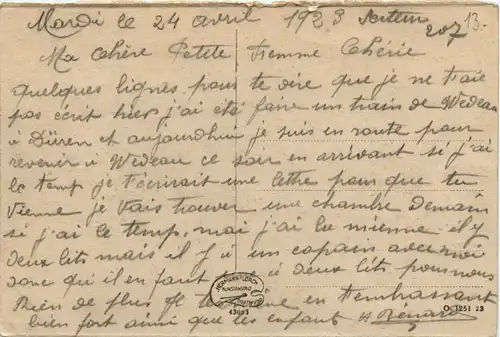 Mardi le 24 avril 1923
207 13.
Ma Chère Petite Femme Chérie
quelques lignes pour te dire que je ne t'aie
pas écrit hier j'ai été faire un train de Wedeau
à Düren et aujourdhui je suis en route pour
revenir à Wedeau ce soir en arrivant si j'ai
le temp je t'écrirait une lettre pour que tu
vienne je vais trouver une chambre demain
si j'ai le temp, moi j'ai la mienne il y
deux lits mais il y a un copain avec moi
donc qu'il en faut à deux lits pour nous
Rien de plus en t'embrassant
bien fort ainsi que les enfant H Renard
43053
O. 1251 23